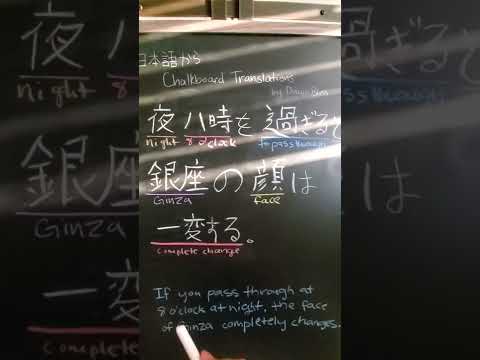 日本語から
Chalkboard Translations
by
夜八時を過ぎると
night 8 o'clock to pass through
銀座の顔は
Ginza face
一変する。
complete change
If you pass through at
8 o'clock at night, the face
of Ginza completely changes.